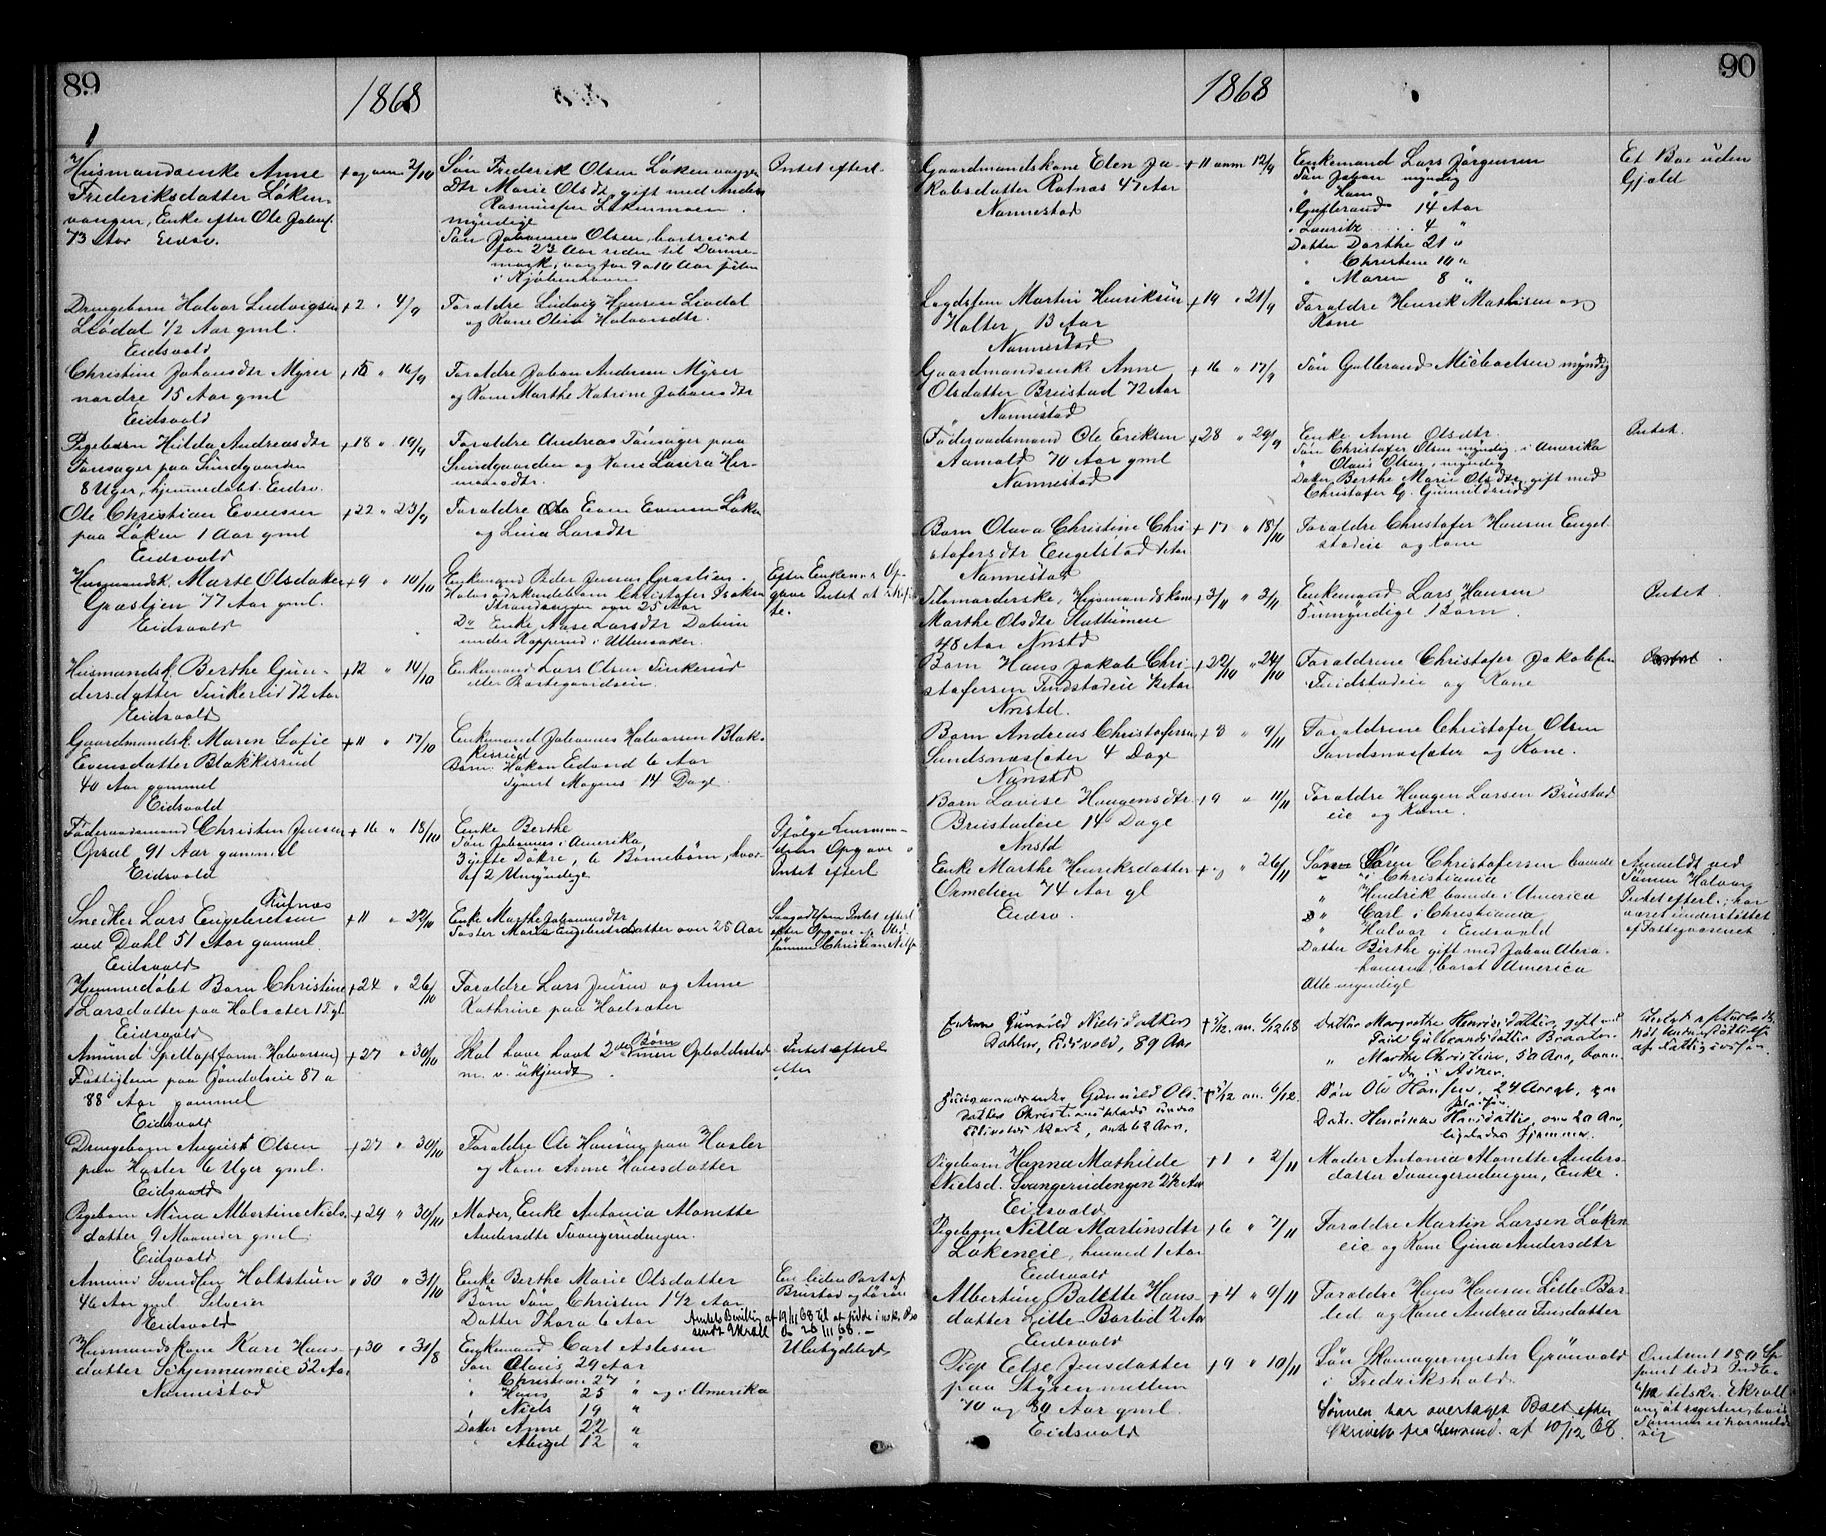 89
1868
Husmandsenke Anne
Frederiksdatter Løken-
vangen, Enke efter Ole Johns.
73 Aar Eidsv.
+ og anm 2/10
Søn Frederik Olsen Løkenvangen
Dtr Marie Olsdtr, gift med Anders
Rasmussen Løkenmoen.
myndige
Søn Johannes Olsen, bortreist
for 23 Aar siden til Danne-
mark, var for 9 a 10 Aar siden
i Kjøbenhavn
Intet efterl.
Drengebarn Halvor Ludvigsen
Leødal 1/2 Aar gml.
Eidsvold
+ 2 " 4/9
Forældre Ludvig Hansen Leødal
og Kone Olea Halvorsdtr.
Christine Johansdtr Myrer
nordre 15 Aar gml
Eidsvold
+ 15 " 16/9
Forældre Johan Andersen Myrer
og Kone Marthe Katrine Johansdtr
Pigebarn Hilda Andreasdtr
Tønsager paa Sundgaarden
8 Uger, hjemmedøbt. Eidsv.
+ 18 " 19/9
Forældre Andreas Tønsager paa
Sundgaarden og Kone Lovisa Her-
mansdtr.
Ole Christian Evensen
paa Løken 1 Aar gml
Eidsvold
+ 22 " 23/9
Forældre Even Evensen Løken
og Lina Larsdtr
Husmandsk. Marte Olsdatter
Græstjen 77 Aar gml.
Eidsvold
+ 9 " 10/10
Enkemand Peder Jensen Græstjen.
Halvsødskendebarn Christofer Isaksen
Strandvangen over 25 Aar
Do Enke Aase Larsdtr Dahlen
under Kopperud i Ullensaker.
Efter Enkem.s Op-
gave Intet at skif-
te.
Husmandsk. Berthe Gun-
dersdatter Tinkerud 72 Aar
Eidsvold
+ 12 " 14/10
Enkemand Lars Olsen Tinkerud
eller Prestegaardseie.
Gaardmandsk. Maren Sofie
Evensdatter Blakkisrud
40 Aar gammel
Eidsvold
+ 11 " 17/10
Enkemand Johannes Halvorsen Blak-
kisrud
Børn: Hakon Edvard 6 Aar
Syvert Magnus 14 Dage
Føderaadsmand Christen Jensen
Opsal 91 Aar gammel
Eidsvold
+ 16 " 18/10
Enke Berthe
Søn Johannes i Amerika,
3 gifte Døtre, 6 Børnebørn, hvor-
af 2 Umyndige
Ifølge Lensman-
dens Opgave
Intet efterl
Snedker Lars Engebretsen Rutnæs
ved Dahl 51 Aar gammel.
Eidsvold
+ 11 " 22/10
Enke Marthe Johannesdtr
Søster Maria Engebretsdatter over 25 Aar
Saagodtsom Intet efterl
efter Opgave af Sted-
sønnen Christian Nils
Hjemmedøbt Barn Christine
Larsdatter paa Holsæter 1 D gl
Eidsvold
+ 24 " 26/10
Forældre Lars Jensen og Anne
Kathrine paa Hoelsæter
Amund Spellopsfarm (Halvorsen)
Fattiglem paa Gøndalseie 87 a
88 Aar gammel
Eidsvold
+ 27 " 30/10
Skal have havt 2de Børn
m. v. ukjendt
Intet efterl
efter
Drengebarn August Olsen
paa Hasler 6 Uger gml.
Eidsvold
+ 27 " 30/10
Forældre Ole Hansen paa Hasler
og Kone Anne Hansdatter
Pigebarn Mina Albertine Niels-
datter 9 Maaneder gml.
Eidsvold
+ 29 " 30/10
Moder, Enke Antonia Alonette
Andersdtr Svangerudengen.
Amund Svendsen Holtstuen
46 Aar gml
Eidsvold
" 30 " 31/10
Enke Berthe Marie Olsdatter
Børn Søn Christen 1 1/2 Aar
Datter Thora 6 Aar
En liden Part af
Brustad
Amtets Bevilling af 19/11 68 til at sidde i uskiftet Bo
sendt Ekroll d. 26/11 68. —
Husmandskone Kari Hans-
datter Sckjennumeie 52 Aar
Nannestad
+ 30 " 31/8
Enkemand Carl Aslesen
Søn Olaus 29 Aar
" Christian 27 "
" Hans 25 " og i Amerika
" Niels 19 "
Datter Anne 22 "
" Abigel 12 "
Ubetydeligt
90
1868
Gaardmandskone Elen Ja-
kobsdatter Rotnæs 47 Aar
Nannestad
+ 11 anm 12/9
Enkemand Lars Jørgensen
Søn Johan myndig
" Hans "
" Gulbrand 14 Aar
" Lauritz 4 "
Datter Dorthe 21 "
" Christine 10 "
" Maren 8 "
Et Boe uden
Gjæld
Lægdslem Martin Henriksen
Holter, 13 Aar
Nannestad
+ 19 " 21/9
Forældre Henrik Mathisen og
Kone
Gaardmandsenke Anne
Olsdatter Brustad 72 Aar
Nannestad
+ 16 " 17/9
Søn Gulbrand Michaelsen myndig
Føderaadsmand Ole Eriksen
Aamold 70 Aar gml
Nannestad
+ 28 " 29/9
Enke Anne Olsdtr.
Søn Christofer Olsen myndig i Amerika
" Olaus Olsen, myndig
Datter Berthe Marie Olsdtr, gift med
Christofer G. Gunnildrud
Intet.
Barn Olava Christine Chri-
stofersdtr Engelstad
Nannestad
+ 17 " 18/10
Forældre Christofer Hansen Engel-
stadeie og Kone
Husmandskone
Marthe Olsdtr Slattumeie
48 Aar Nnstd
+ 3/11 " 3/11
Enkemand Lars Hansen
Umyndige Børn
Intet.
Barn Hans Jakob Chri-
stofersen
Nnstd.
+ 22/10 " 24/10
Forældrene Christofer Jakobsen
og Kone
Barn Andreas Christofersen
Sundsnæssæter 4 Dage
Nanstd
+ 3 " 9/11
Forældrene Christofer Olsen
Sandsnæssæter og Kone.
Barn Lovise Haagensdtr
Brustadeie 14 Dage
Nnstd
+ 9 " 11/11
Forældre Haagen Larsen Brustad
eie og Kone.
Enke Marthe Henriksdatter
Ormelien 74 Aar gl
Eidsv.
+ " 26/11
Søn Søren Christofersen
" i Christiania
" Hendrik boende i America
" Carl i Christiania
" Halvor i Eidsvold
Datter Berthe gift med Johan Abra-
hamsen, boset America
Alle myndige
Anmeldt ved
Sønnen Halvor
Intet efterl.; har
været understøttet
af Fattigvæsenet
Enken Gunild Nielsdatter
Dahlen, Eidsvold, 89 Aar
+ 5/12. an. 6/12 68
Datter Margrethe Henriksdatter, gift med
Gulbrandsdatter Braaten
" Marthe Christine, 50 Aar,
Husmandsenke Gunild Ols-
datter Christiansfladt under
Eidsvold Værk, omt. 62 Aar,
+ 5/12 an. 6/12.
Søn Ole Hansen, 24 Aar gl,
Datr. Henrikke Hansdatter, over 20 Aar,
ligeledes hjemme.
Pigebarn Hanna Mathilde
Nielsd. Svangerudengen 2 1/2 Aar
Eidsvold
+ 1 " 2/11
Moder Antonia Alonette Anders-
datter Svangerudengen, Enke.
Pigebarn Nilla Martinsdtr
Løkeneie, henved 1 Aar
Eidsvold
+ 6 " 7/11
Forældre Martin Larsen Løken
eie og Kone Gina Andersdtr
Albertine Bolette Hans-
datter Lille-Borlid 2 Aar
Eidsvold
+ 4 " 9/11
Forældre Hans Hansen Lille-Bor-
lid og Kone Andrea Jensdatter
Pige Else Jensdatter
paa Styren mellem
70 og 80 Aar gml.
Eidsvold
+ 9 " 10/11
Søn Skomagermester Grønvold
i Fredrikshald.
Sønnen har overtaget Boet efter
Skrivelse fra Lensmd. af 10/12 68.
Omtrent 180 Sp
tilskr. Ekroll